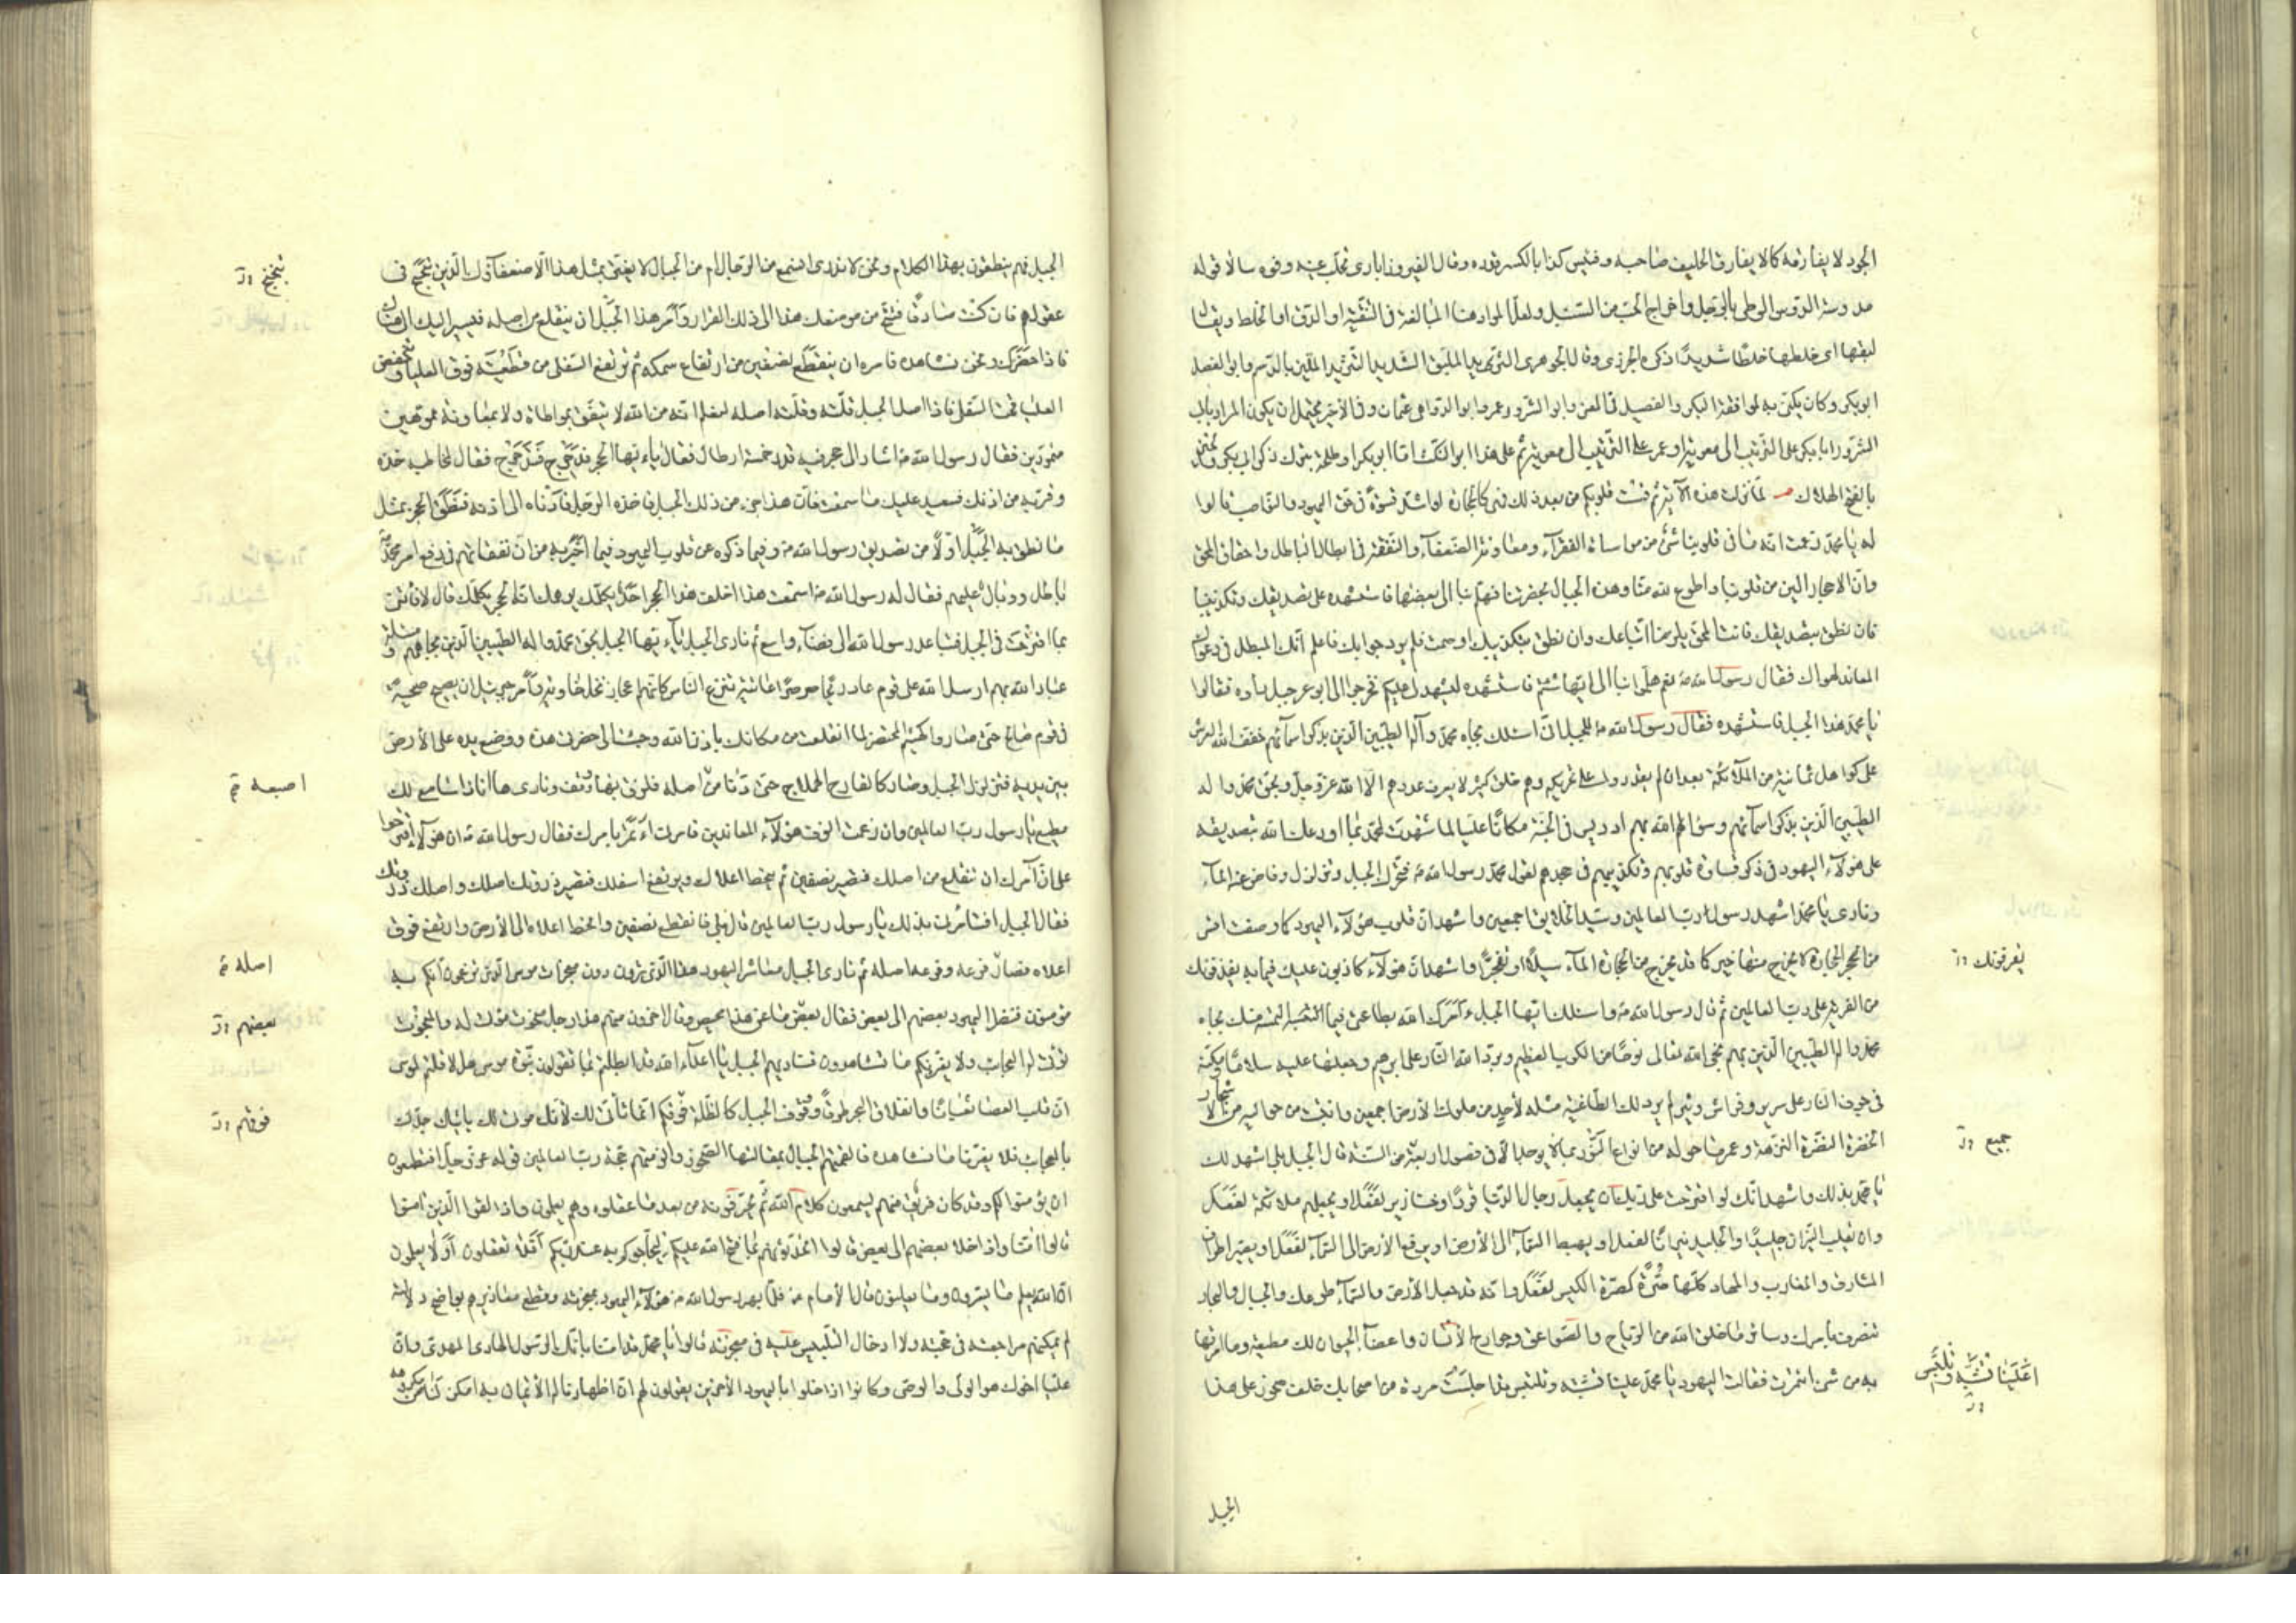 الجود لا يفارقه كما لا يفارق الحليف صاحبه و فنيس كذا بالكسر قوده وقال الفيروزابادي تحلب عينه وفوه سالا قوله
مد وسه الدوس الوطي بالرجل واخراج الحب من السنبل ولعل المراد هنا المبالغة في التنقية او الدق او الخلط ويقال
لبقها اي خلطها خلطا شديدا ذكره الجزري وقال الجوهري الثريد الملبق الشديد التثريد الملين بالدسم وابو الفصيل
ابو بكر وكان يكنى به لموافقة البكر والفصيل في المعنى وابو الشرور عمر وابو الدواهي عثمان وفي الاخير يحتمل ان يكون المراد بابي
الشرور ابا بكر على الترتيب الى معوية او عمر على الترتيب الى معوية ثم على هذا ابو النكث اما ابو بكر او طلحة بترك ذكر ابي بكر
بالفتح الهلاك م لما نزلت هذه الآية ثم قست قلوبكم من بعد ذلك فهي كالحجارة او اشد قسوة في حق اليهود والنواصب قالوا
له يا محمد زعمت انه ما في قلوبنا شئ من مواساة الفقرآء ومعاونة الضعفآء والنفقة في ابطال الباطل واحقاق الحق
وان الاحجار الين من قلوبنا واطوع لله منا وهذه الجبال بحضرتنا فهلم بنا الى بعضها فاستشهده على تصديقك وتكذيبنا
فان نطق بتصديقك فانت المحق يلزمنا اتباعك وان نطق بتكذيبك او صمت فلم يرد جوابك فاعلم انك المبطل في دعواك
المعاند لهواك فقال رسول الله ص نعم هلموا بنا الى ايها شئتم فاستشهده ليشهد لي عليكم فخرجوا الى اوعر جبل رأوه فقالوا
يا محمد هذا الجبل فاستشهده فقال رسول الله ص للجبل اني اسئلك بجاه محمد وآله الطيبين الذين بذكر اسمآئهم خفف الله العرش
على كواهل ثمانية من الملآئكة بعد ان لم يقدروا على تحريكه وهم خلق كثير لا يعرف عددهم الا الله عز وجل وبحق محمد واله
الطيبين الذين بذكر اسمآئهم وسؤالهم الله بهم رفع ادريس في الجنة مكانا عليا لما شهدت لمحمد بما اودعك الله بتصديقه
على هؤلآء اليهود في ذكر قساوة قلوبهم وتكذيبهم في جحدهم لقول محمد رسول الله ص فتحرك الجبل وتزلزل وفاض عنه المآء
ونادى يا محمد اشهد انك رسول رب العالمين وسيد الخلايق اجمعين واشهد ان قلوب هؤلآء اليهود كما وصفت اقسى
من الحجارة لا يخرج منها خير كما قد يخرج من الحجارة المآء سيلا او تفجرا واشهد ان هؤلآء كاذبون عليك فيما به يقذفونك
من الفرية على رب العالمين ثم قال رسول الله ص واسئلك ايها الجبل ءامرك الله بطاعتي فيما التمسه منك بجاه
محمد واله الطيبين الذين بهم نجى الله تعالى نوحا من الكرب العظيم وبرد الله النار على ابرهيم وجعلها عليه سلاما ومكنه
في جوف النار على سرير وفراش وثير لم ير ذلك الطاغية مثله لأحد من ملوك الأرض اجمعين وانبت من حواليه من الاشجار
الخضرة النضرة النزهة وعمر ما حوله من انواع النور بما لا يوجد الا في فصول اربعة من السنة قال الجبل بلى اشهد لك
يا محمد بذلك واشهد انك لو اقترحت على ربك ان يجعل رجال الدنيا قردا وخنازير لفعل او يجعلهم ملائكة لفعل
وان يقلب النيران جليدا والجليد نيرانا لفعل او يهبط السمآء الى الأرض او يرفع الأرض الى السمآء لفعل او يصير اطراف
المشارق والمغارب والوهاد كلها صرة كصرة الكيس لفعل وانه قد جعل الأرض والسمآء طوعك والجبال والبحار
تنصرف بامرك وسائر ما خلق الله من الرياح والصواعق وجوارح الأنسان واعضآء الحيوان لك مطيعة وما امرتها
به من شئ ائتمرت فقالت اليهود يا محمد علينا تشبه وتلبس قد اجلست مردة من اصحابك خلف صخور على هذا
يفرقونك خ
جميع خ
اعلينا تشبه وتلبس
خ
الجبل
الجبل فهم ينطقون بهذا الكلام ونحن لا ندري انسمع من الرجال ام من الجبال لا يغتر بمثل هذا الا ضعفآؤك الذين تبحبح في
عقولهم فان كنت صادقا فتنح من موضعك هذا الى ذلك القرار وآمر هذا الجبل ان ينقلع من اصله فيسير اليك الى هناك
فاذا حضرك ونحن نشاهده فامره ان ينقطع نصفين من ارتفاع سمكه ثم ترتفع السفلى من قطعتيه فوق العليا وتنخفض
العليا تحت السفلى فاذا اصل الجبل قلته وقلته اصله لنعلم انه من الله لا يتفق بمواطاة ولا بمعاونة مموهين
متمردين فقال رسول الله ص واشار الى حجر فيه قدر خمسة ارطال فقال يا ايها الحجر تدحرج فتدحرج فقال لمخاطبه خذه
وقربه من اذنك فسيعيد عليك ما سمعت فان هذا جزء من ذلك الجبل فاخذه الرجل فادناه الى اذنه فنطق الحجر بمثل
ما نطق به الجبل اولا من تصديق رسول الله ص وفيما ذكره عن قلوب اليهود فيما اخبر به من ان نفقاتهم في دفع امر محمد
باطل ووبال عليهم فقال له رسول الله ص اسمعت هذا اخلف هذا الحجر احد يكلمك يوهمك انه الحجر يكلمك قال لا فأتني
بما اقترحت في الجبل فتباعد رسول الله الى فضآء واسع ثم نادى الجبل يا ايها الجبل بحق محمد واله الطيبين الذين بجاههم ومسئلة
عباد الله بهم ارسل الله على قوم عاد ريحا صرصرا عاتية تنزع الناس كانهم اعجاز نخل خاوية وأمر جبرئيل ان يصيح صيحة
في قوم صالح حتى صاروا كهشيم المحتضر لما انقلعت من مكانك باذن الله وجئت الى حضرتي هذه ووضع يده على الأرض
بين يديه فتزلزل الجبل وصار كالقارح الهملاج حتى دنا من اصله فلزق بها ووقف ونادى ها انا ذا سامع لك
مطيع يا رسول رب العالمين وان رغمت انوف هؤلآء المعاندين فامرني أئتمر بامرك فقال رسول الله ص ان هؤلآء اقترحوا
على ان آمرك ان تنقلع من اصلك فتصير نصفين ثم ينحط اعلاك ويرتفع اسفلك فتصير ذروتك اصلك واصلك ذروتك
فقال الجبل افتأمرني بذلك يا رسول رب العالمين قال بلى فانقطع نصفين وانحط اعلاه الى الأرض وارتفع فوق
اعلاه فصار فرعه وفرعه اصله ثم نادى الجبل معاشر اليهود هذا الذي ترون دون معجزات موسى الذي تزعمون انكم به
مؤمنون فنظر اليهود بعضهم الى بعض فقال بعض ما عن هذا محيص وقال اخرون منهم هذا رجل مبخوت مؤت له والمبخوت
يؤتى له العجائب ولا يغرنكم ما تشاهدون فناداهم الجبل يا اعدآء الله قد ابطلتم بما تقولون نبوة موسى هلا قلتم لموسى
ان قلب العصا ثعبانا وانفلاق البحر طرقا ووقوف الجبل كالظلة فوقكم انما تأتى لك لأنك مؤت لك ياتيك جدك
بالعجائب فلا يغرنا ما نشاهده فالقمتهم الجبال بمقالتها الصخور ولزمتهم حجة رب العالمين قوله عز وجل افتطمعون
ان يؤمنوا لكم وقد كان فريق منهم يسمعون كلام الله ثم يحرفونه من بعد ما عقلوه وهم يعلمون واذا لقوا الذين امنوا
قالوا امنا واذا خلا بعضهم الى بعض قالوا اتحدثونهم بما فتح الله عليكم ليحاجوكم به عند ربكم أفلا تعقلون أولا يعلمون
ان الله يعلم ما يسرون وما يعلنون قال الأمام ع فلما بهر رسول الله ص هؤلآء اليهود بمعجزته وقطع معاذيرهم بواضح دلالته
لم يمكنهم مراجعته في حجته ولا ادخال التلبيس عليه في معجزته قالوا يا محمد قد امنا بانك الرسول الهادى المهدى وان
عليا اخوك هو الولى والوصى وكانوا اذا خلوا باليهود الأخرين يقولون لهم ان اظهارنا له الأيمان به امكن لنا من مكروهه
تبحبح خ
اصبعه خ
اصله خ
بعضهم خ
فوقهم خ